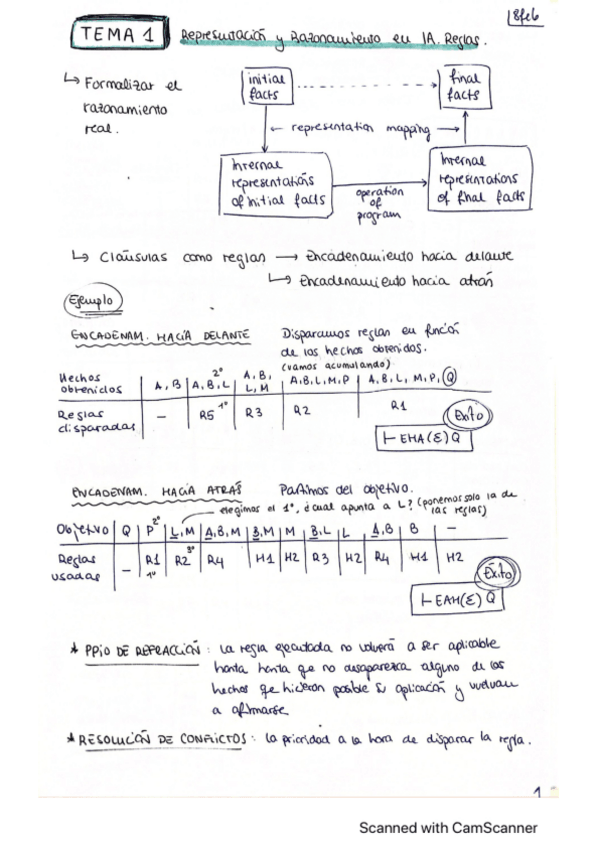 8feb
TEMA 1 Representación y Razonamiento en IA. Reglas.
↳ Formalizar el
razonamiento
real.
initial
facts
final
facts
← representation mapping →
Internal
representations
of initial facts
operation
of
program
Internal
representations
of final facts
↳ Claúsulas como reglas → Encadenamiento hacia delante
↳ Encadenamiento hacia atrás
Ejemplo
ENCADENAM. HACÍA DELANTE Disparamos reglas en función
de los hechos obtenidos.
(vamos acumulando)
Hechos
obtenidos | A, B | A, B, L 2º | A, B, L, M | A, B, L, M, P | A, B, L, M, P, Q
Reglas
disparadas | — | R5 1º | R3 | R2 | R1
Éxito
⊢ EHA(Σ) Q
ENCADENAM. HACIA ATRÁS Partimos del objetivo.
elegimos el 1º, ¿cual apunta a L? (ponemos solo la de
las reglas)
Objetivo | Q | P 2º | L, M | A, B, M | B, M | M | B, L | L | A, B | B | —
Reglas
usadas | — | R1 1º | R2 3º | R4 | H1 | H2 | R3 | H2 | R4 | H1 | H2
Éxito
⊢ EAH(Σ) Q
* PPIO DE REFRACCIÓN : La regla ejecutada no volverá a ser aplicable
hasta hasta que no desaparezca alguno de los
hechos que hicieron posible su aplicación y vuelvan
a afirmarse
* RESOLUCIÓN DE CONFLICTOS : la prioridad a la hora de disparar la regla.
1
Scanned with CamScanner